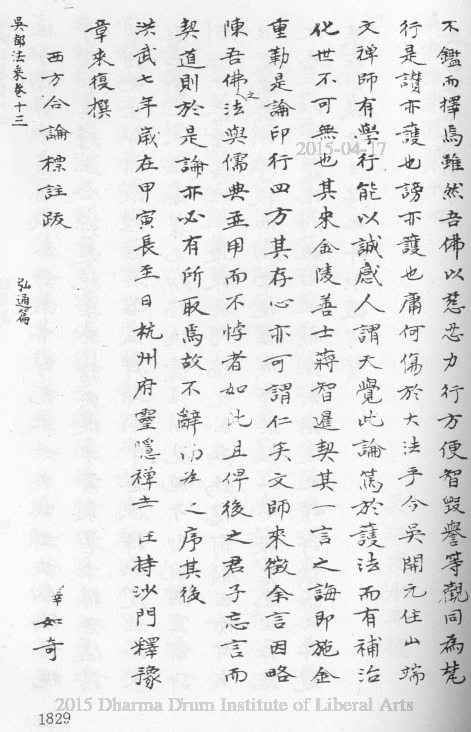 不鑑而擇焉雖然吾佛以慈忍力行方便智毀譽等觀同為梵
行是讚亦護也謗亦護也庸何傷於大法乎今吳開元住山端
文禪師有學行能以誠感人謂天覺此論篤於護法而有補治
化世不可無也其來金陵善士蔣智暹契其一言之誨即施金
重勒是論印行四方其存心亦可謂仁矣文師來徵余言因略
陳吾佛之法與儒典並用而不悖者如此且俾後之君子忘言而
契道則於是論亦必有所取焉故不辭而為之序其後
洪武七年歲在甲寅長至日杭州府靈隱禪寺住持沙門釋豫
章來復撰
西方合論標註跋
幸如奇
吳都法乘卷十三
弘通篇
1829
2015-04-17
2015 Dharma Drum Institute of Liberal Arts